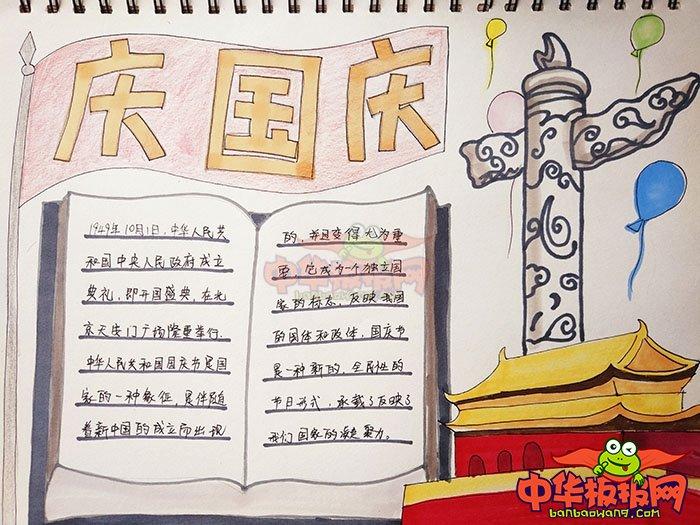 庆国庆
1949年10月1日,中华人民共
和国中央人民政府成立
典礼,即开国盛典,在北
京天安门广场隆重举行.
中华人民共和国国庆节是国
家的一种象征,是伴随
着新中国的成立而出现
的,并且变得尤为重
要,它成为一个独立国
家的标志,反映我国
的国体和政体,国庆节
是一种新的、全民性的
节日形式,承载了反映了
我们国家的凝聚力。
中华板报网
中华板报网
banbaowang.com